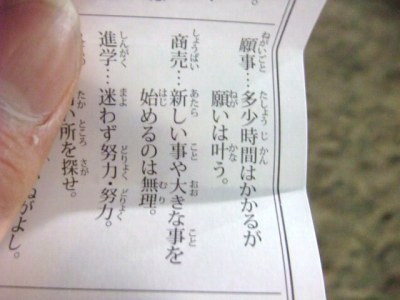 願事…多少時間はかかるが
願いは叶う。
商売…新しい事や大きな事を
始めるのは無理。
進学…迷わず努力・努力。
高い所を探せ。
がよし。